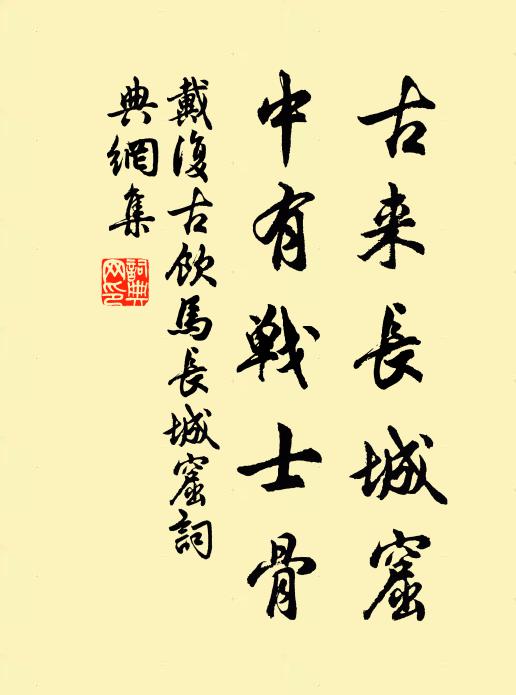 古来長城窟
中有戦士骨
戴復古飲馬長城窟詞
典網集
詞典网印